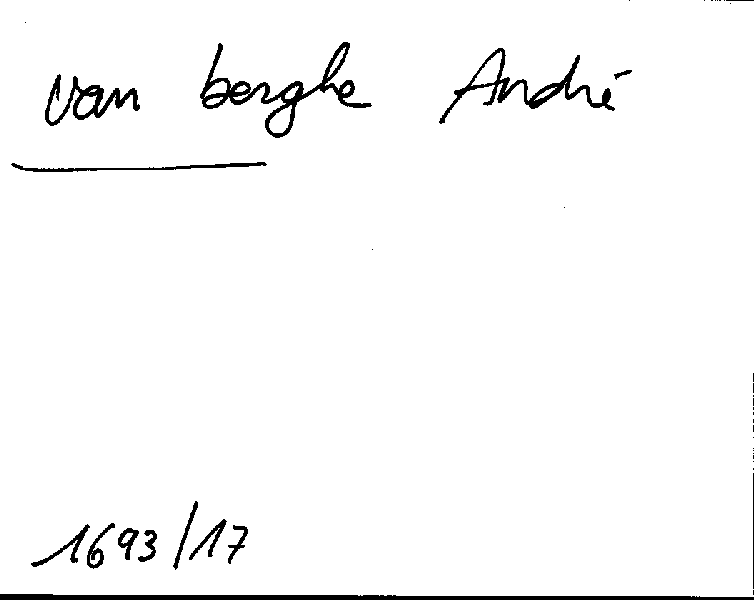 van berghe André
1693/17